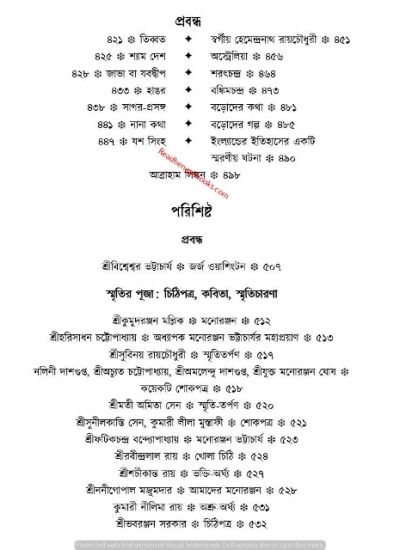 প্রবন্ধ
৪২১ ❊ তিব্বত ✦ স্বর্গীয় হেমেন্দ্রনাথ রায়চৌধুরী ❊ ৪৫১
৪২৫ ❊ শ্যাম দেশ ✦ অস্ট্রেলিয়া ❊ ৪৫৬
৪২৮ ❊ জাভা বা যবদ্বীপ ✦ শরৎচন্দ্র ❊ ৪৬৪
৪৩৩ ❊ হাঙর ✦ বঙ্কিমচন্দ্র ❊ ৪৭৩
৪৩৮ ❊ সাগর-প্রসঙ্গ ✦ বড়োদের কথা ❊ ৪৮১
৪৪১ ❊ নানা কথা ✦ বড়োদের গল্প ❊ ৪৮৫
৪৪৭ ❊ যশ সিংহ ✦ ইংল্যান্ডের ইতিহাসের একটি
স্মরণীয় ঘটনা ❊ ৪৯০
আব্রাহাম লিঙ্কন ❊ ৪৯৮
পরিশিষ্ট
প্রবন্ধ
শ্রীবিশ্বেশ্বর ভট্টাচার্য ❊ জর্জ ওয়াশিংটন ❊ ৫০৭
স্মৃতির পূজা : চিঠিপত্র, কবিতা, স্মৃতিচারণা
শ্রীকুমুদরঞ্জন মল্লিক ❊ মনোরঞ্জন ❊ ৫১২
শ্রীহরিসাধন চট্টোপাধ্যায় ❊ অধ্যাপক মনোরঞ্জন ভট্টাচার্যর মহাপ্রয়াণ ❊ ৫১৩
শ্রীসুবিনয় রায়চৌধুরী ❊ স্মৃতিতর্পণ ❊ ৫১৭
নলিনী দাশগুপ্ত, শ্রীঅচ্যুত চট্টোপাধ্যায়, শ্রীঅমলেন্দু দাশগুপ্ত, শ্রীযুক্ত মনোরঞ্জন ঘোষ ❊
কয়েকটি শোকপত্র ❊ ৫১৮
শ্রীমতী অমিতা সেন ❊ স্মৃতি-তর্পণ ❊ ৫২০
শ্রীসুনীলকান্তি সেন, কুমারী লীলা মুস্তাফী ❊ শোকপত্র ❊ ৫২১
শ্রীফটিকচন্দ্র বন্দ্যোপাধ্যায় ❊ মনোরঞ্জন ভট্টাচার্য ❊ ৫২৩
শ্রীরবীন্দ্রলাল রায় ❊ খোলা চিঠি ❊ ৫২৪
শ্রীশচীকান্ত রায় ❊ ভক্তি-অর্ঘ্য ❊ ৫২৭
শ্রীননীগোপাল মজুমদার ❊ আমাদের মনোরঞ্জন ❊ ৫২৮
কুমারী নীলিমা রায় ❊ অশ্রু-অর্ঘ্য ❊ ৫৩১
শ্রীভবরঞ্জন সরকার ❊ চিঠিপত্র ❊ ৫৩২